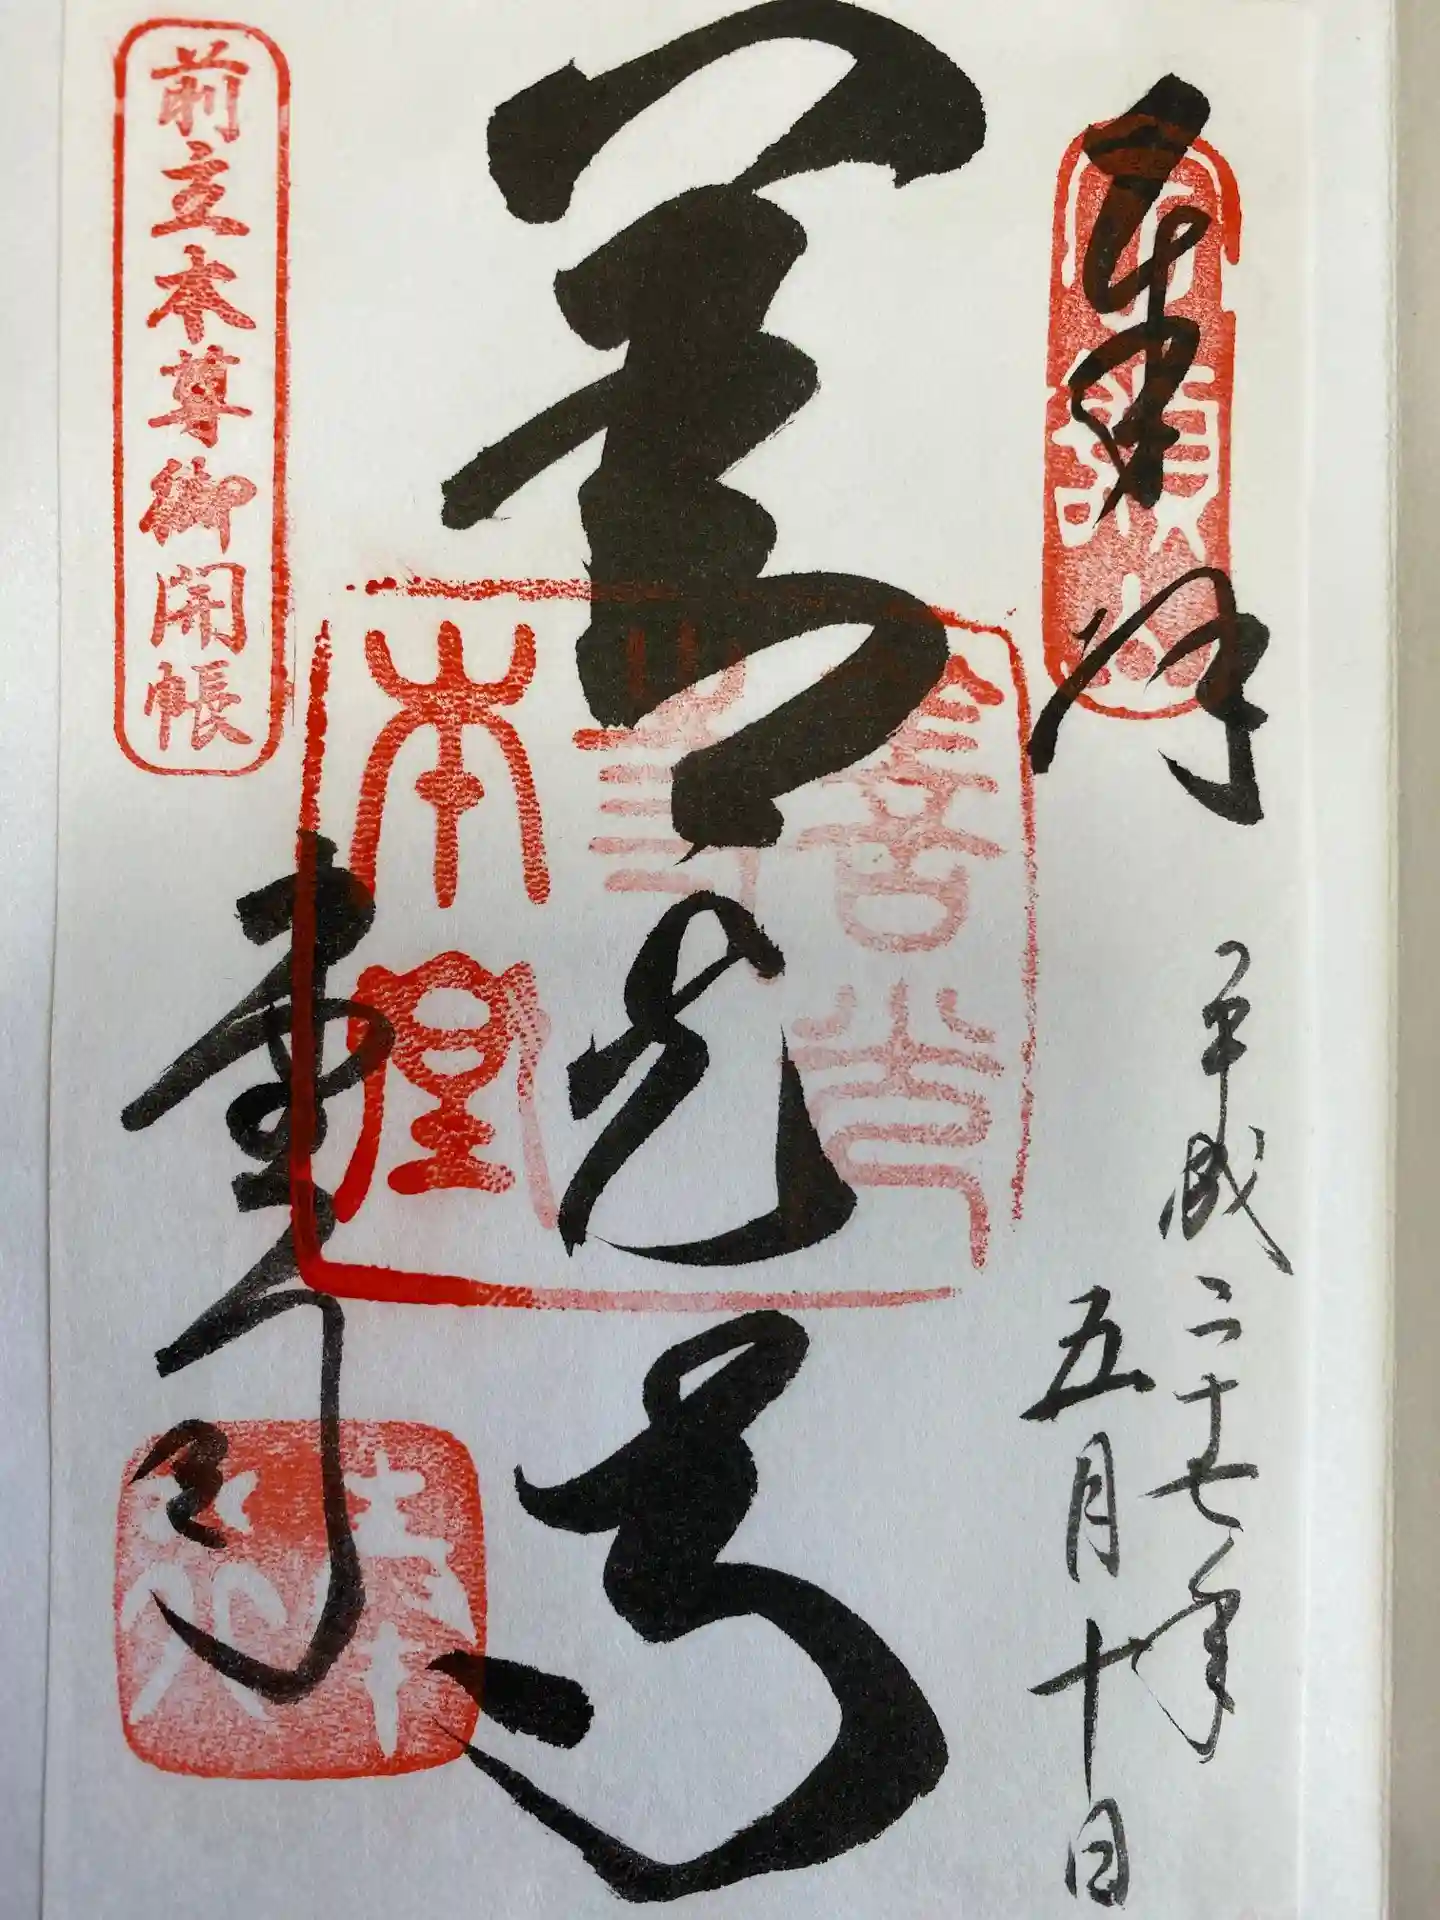 奉拝
定額山
平成二十七年
五月十日
善光寺
善光
本堂
前立本尊御開帳